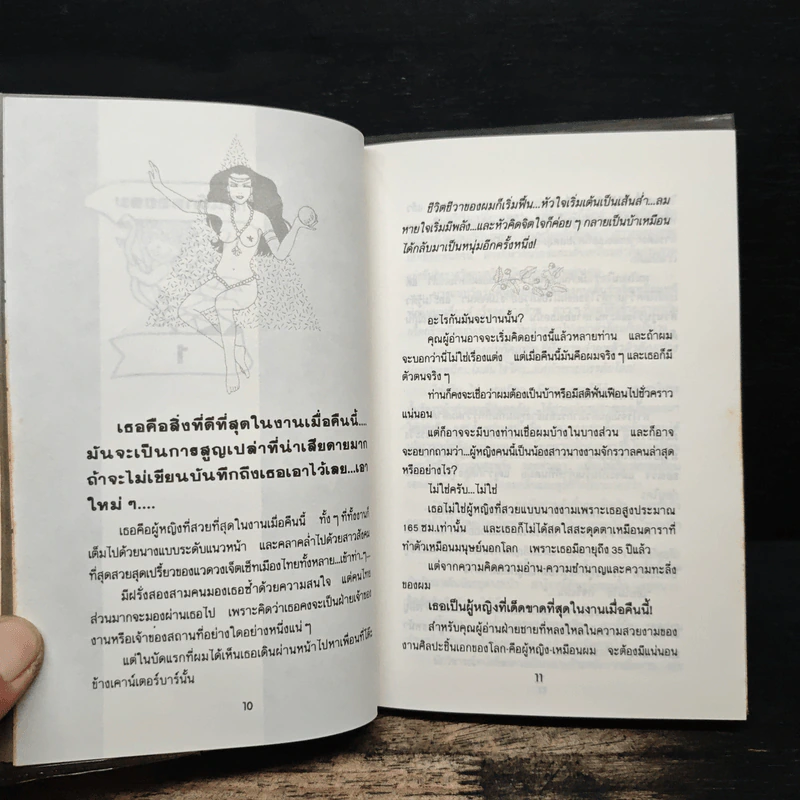 เธอคือสิ่งที่ดีที่สุดในงานเมื่อคืนนี้....
มันจะเป็นการสูญเปล่าที่น่าเสียดายมาก
ถ้าจะไม่เขียนบันทึกถึงเธอเอาไว้เลย...เอา
ใหม่ ๆ....
เธอคือผู้หญิงที่สวยที่สุดในงานเมื่อคืนนี้ ทั้ง ๆ ที่ทั้งงานก็
เต็มไปด้วยนางแบบระดับแนวหน้า และคลาคล่ำไปด้วยสาวสังคม
ที่สุดสวยสุดเปรี้ยวของแวดวงเจ็ตเซ็ทเมืองไทยทั้งหลาย...เข้าท่า..ๆ..
มีฝรั่งสองสามคนมองเธอซ้ำด้วยความสนใจ แต่คนไทย
ส่วนมากจะมองผ่านเธอไป เพราะคิดว่าเธอคงจะเป็นฝ่ายเจ้าของ
งานหรือเจ้าของสถานที่อย่างใดอย่างหนึ่งแน่ ๆ
แต่ในบัดแรกที่ผมได้เห็นเธอเดินผ่านหน้าไปหาเพื่อนที่โต๊ะ
ข้างเคาน์เตอร์บาร์นั้น
10
ชีวิตชีวาของผมก็เริ่มฟื้น...หัวใจเริ่มเต้นเป็นเส้นส่ำ...ลม
หายใจเริ่มมีพลัง...และหัวคิดจิตใจก็ค่อย ๆ กลายเป็นบ้าเหมือน
ได้กลับมาเป็นหนุ่มอีกครั้งหนึ่ง!
อะไรกันมันจะปานนั้น?
คุณผู้อ่านอาจจะเริ่มคิดอย่างนี้แล้วหลายท่าน และถ้าผม
จะบอกว่านี่ไม่ใช่เรื่องแต่ง แต่เมื่อคืนนี้มันคือผมจริง ๆ และเธอก็มี
ตัวตนจริง ๆ
ท่านก็คงจะเชื่อว่าผมต้องเป็นบ้าหรือมีสติฟั่นเฟือนไปชั่วคราว
แน่นอน
แต่ก็อาจจะมีบางท่านเชื่อผมบ้างในบางส่วน และก็อาจ
จะอยากถามว่า...ผู้หญิงคนนี้เป็นน้องสาวนางงามจักรวาลคนล่าสุด
หรืออย่างไร?
ไม่ใช่ครับ...ไม่ใช่
เธอไม่ใช่ผู้หญิงที่สวยแบบนางงามเพราะเธอสูงประมาณ
165 ซม.เท่านั้น และเธอก็ไม่ได้สดใสสะดุดตาเหมือนดาราที่
ทำตัวเหมือนมนุษย์นอกโลก เพราะเธอมีอายุถึง 35 ปีแล้ว
แต่จากความคิดความอ่าน·ความชำนาญและความทะลึ่ง
ของผม
เธอเป็นผู้หญิงที่เด็ดขาดที่สุดในงานเมื่อคืนนี้!
สำหรับคุณผู้อ่านฝ่ายชายที่หลงใหลในความสวยงามของ
งานศิลปะชิ้นเอกของโลก·คือผู้หญิง·เหมือนผม จะต้องมีแน่นอน
11